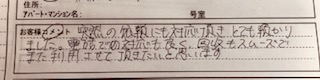 住所
アパート・マンション名： 号室
お客様コメント 突然の依頼にも対応頂き とても助かり
ました。電話での対応も良く、回収もスムーズで
また利用させて頂きたいと思います